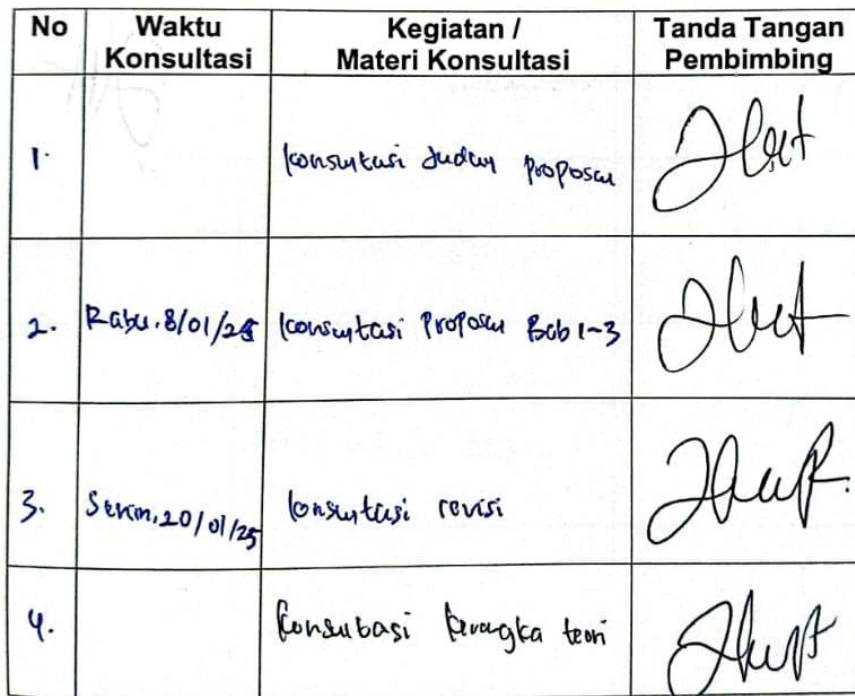 No Waktu Konsultasi Kegiatan / Materi Konsultasi Tanda Tangan Pembimbing
1. Konsultasi Judul proposal
2. Rabu, 8/01/25 Konsultasi Proposal Bab 1-3
3. Senin, 20/01/25 Konsultasi revisi
4. Konsultasi kerangka teori